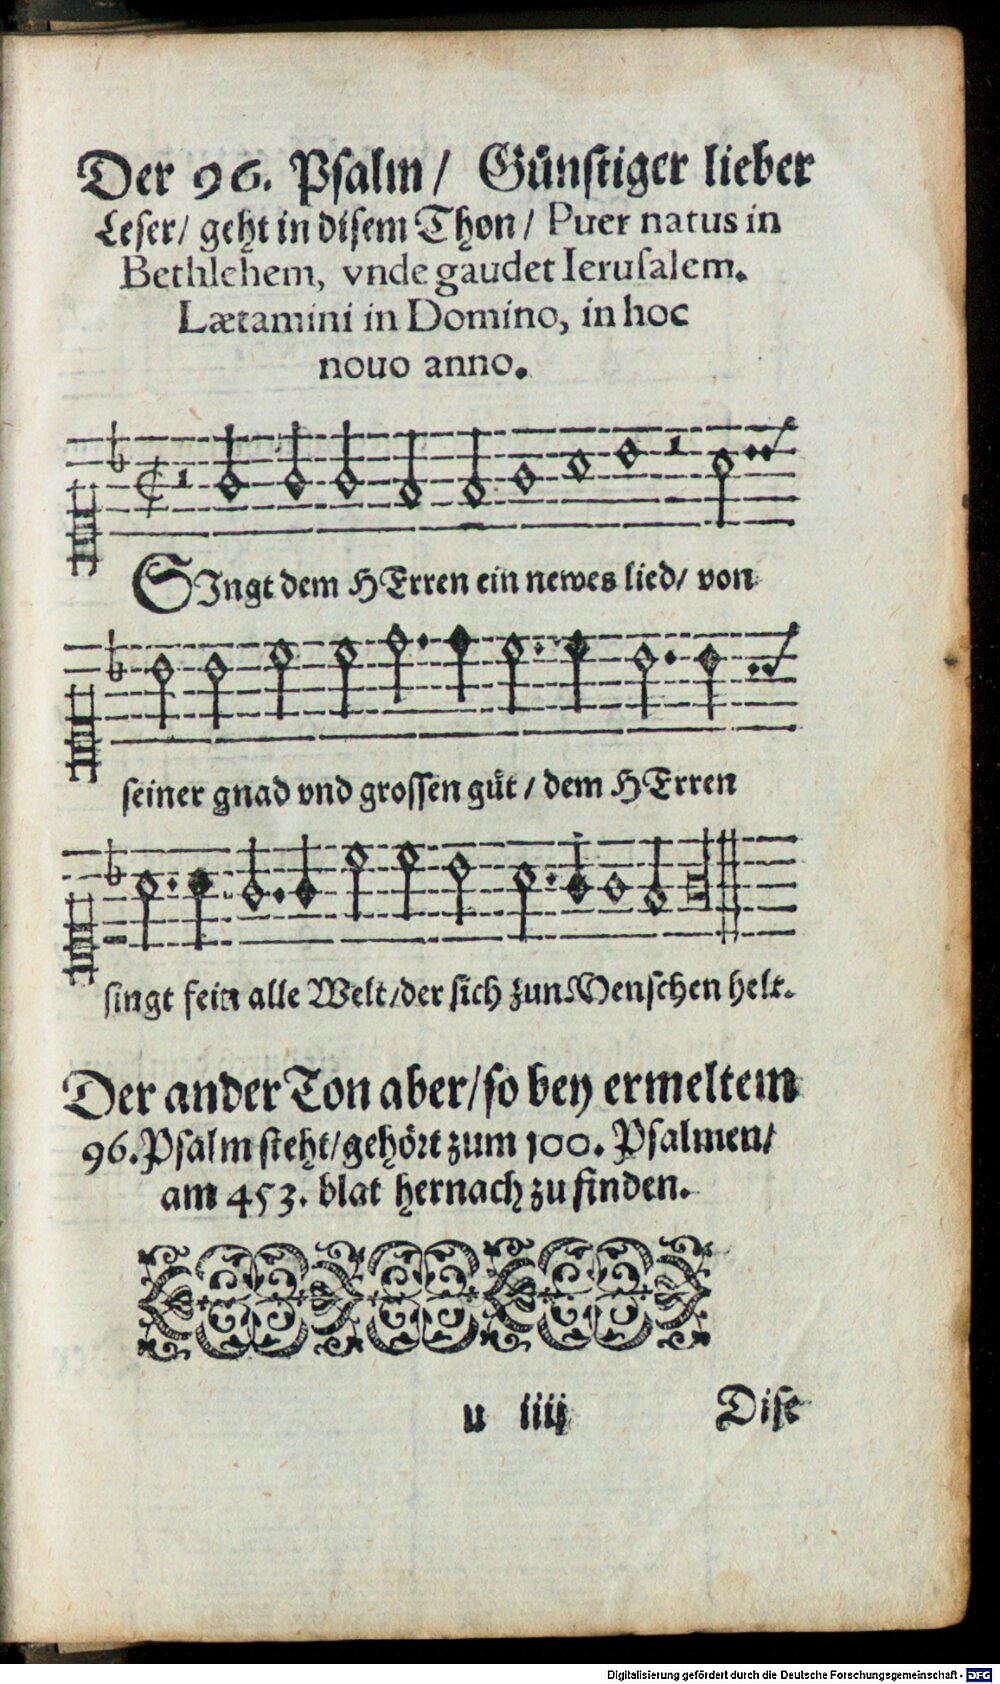 Der 96. Psalm / Gůnstiger lieber
Leser / geht in disem Thon / Puer natus in
Bethlehem, vnde gaudet Ierusalem.
Lætamini in Domino, in hoc
nouo anno.
SIngt dem HErren ein newes lied / von
seiner gnad vnd grossen güt / dem HErren
singt fein alle Welt / der sich zun Menschen helt.
Der ander Ton aber / so bey ermeltem
96. Psalm steht / gehört zum 100. Psalmen /
am 453. blat hernach zu finden.
u iiij Dise
Digitalisierung gefördert durch die Deutsche Forschungsgemeinschaft - DFG